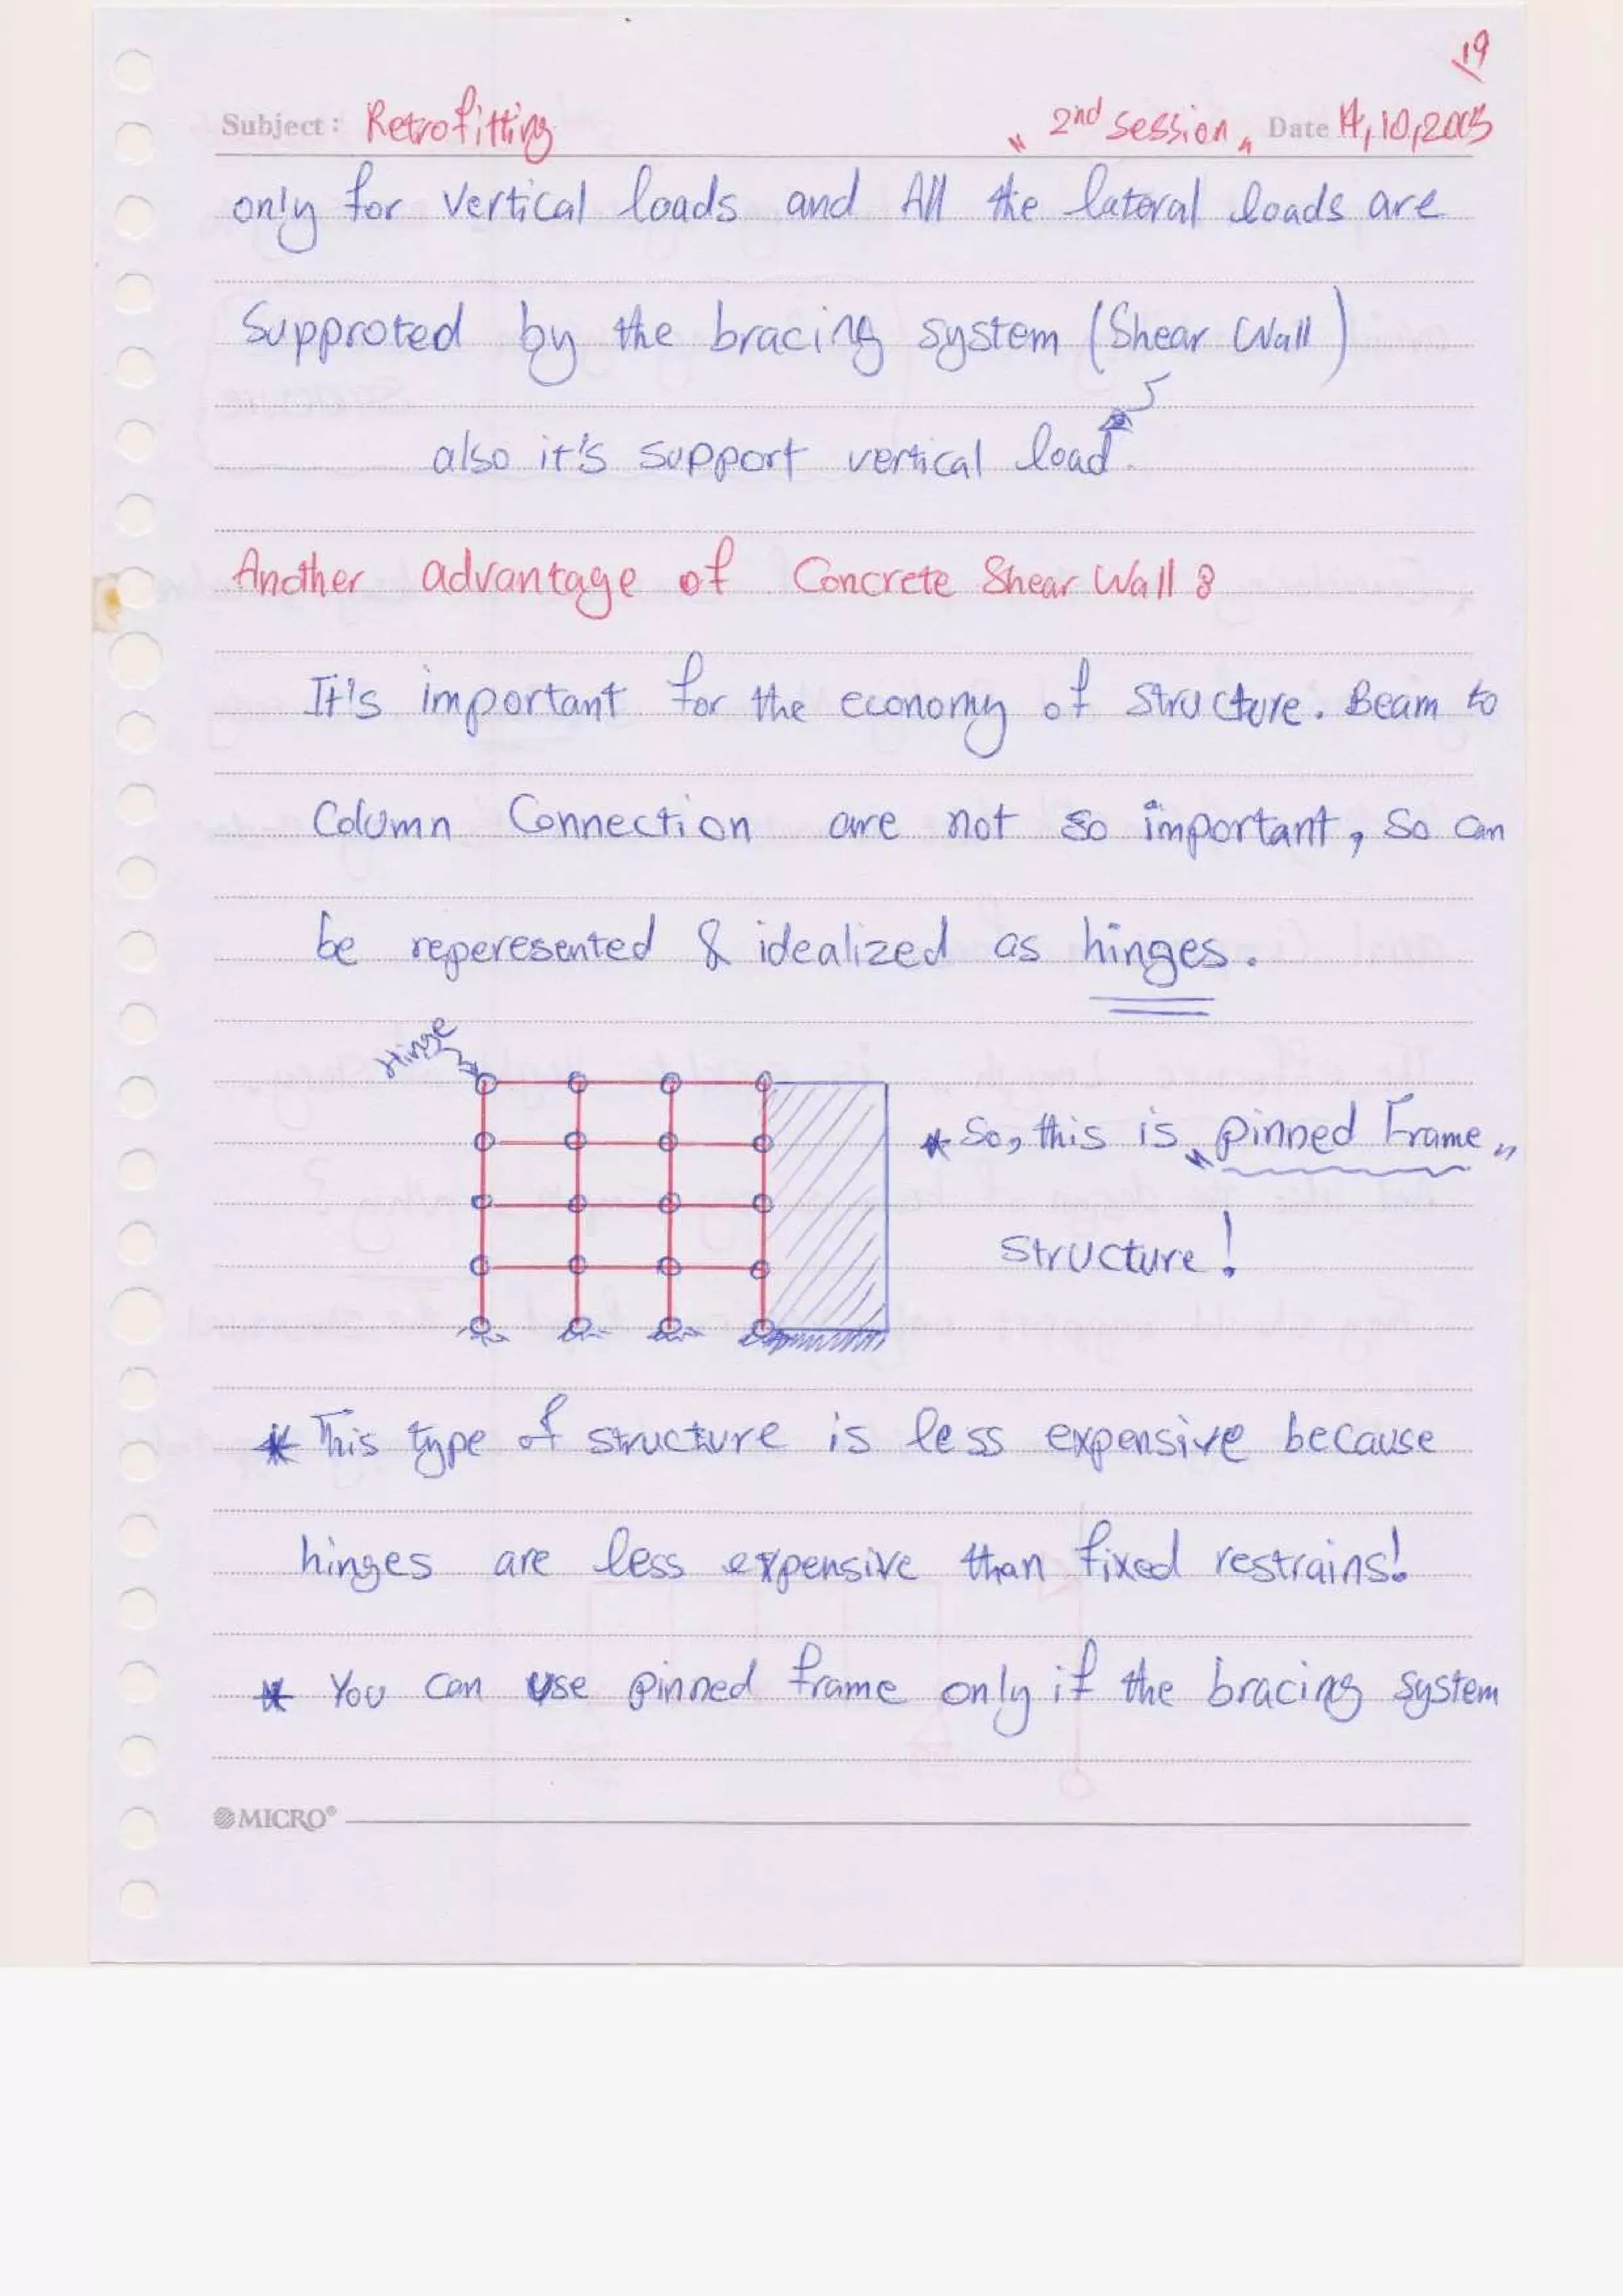 19
Subject: Retrofitting "2nd session" Date 14,10,2015
only for vertical loads and All the lateral loads are
Supproted by the bracing system (Shear Wall)
also it's support vertical load.
Another advantage of Concrete Shear Wall:
It's important for the economy of structure. Beam to
Column Connection are not so important, so can
be reperesented & idealized as hinges.
Hinge
* So, this is "pinned Frame"
structure!
* This type of structure is less expensive because
hinges are less expensive than fixed restrains!
* You can use pinned frame only if the bracing system
MICRO®